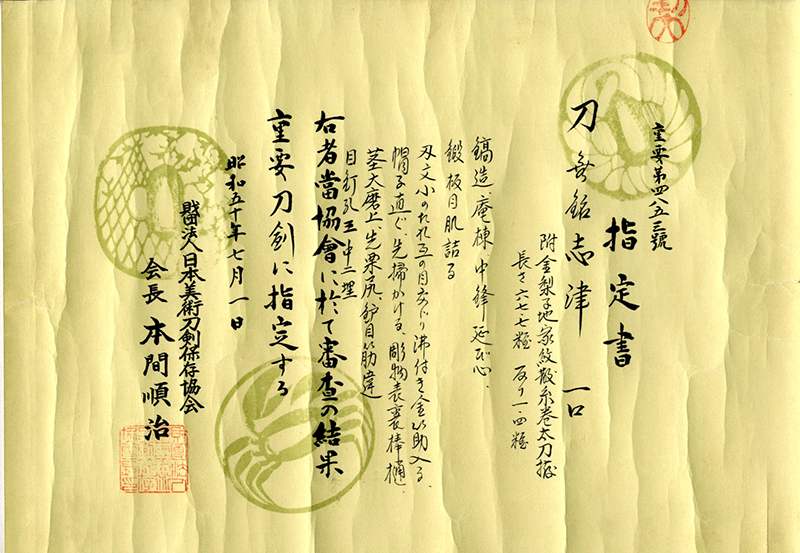 重要第四八五三號
指定書
刀 無銘 志津 一口
附 金梨子地家紋散糸巻太刀拵
長さ 六七・七糎 反り 一・四糎
鎬造、庵棟、中鋒延び心、
鍛 板目肌詰る
刃文 小のたれ互の目交り沸付き金筋入る、
帽子 直ぐ、先掃かける、彫物 表裏棒樋、
茎 大磨上、先栗尻、鑢目筋違
目釘孔 三中二埋
右者當協會に於て審査の結果
重要刀剣に指定する
昭和五十年七月一日
財団法人日本美術刀剣保存協会
会長 本間順治